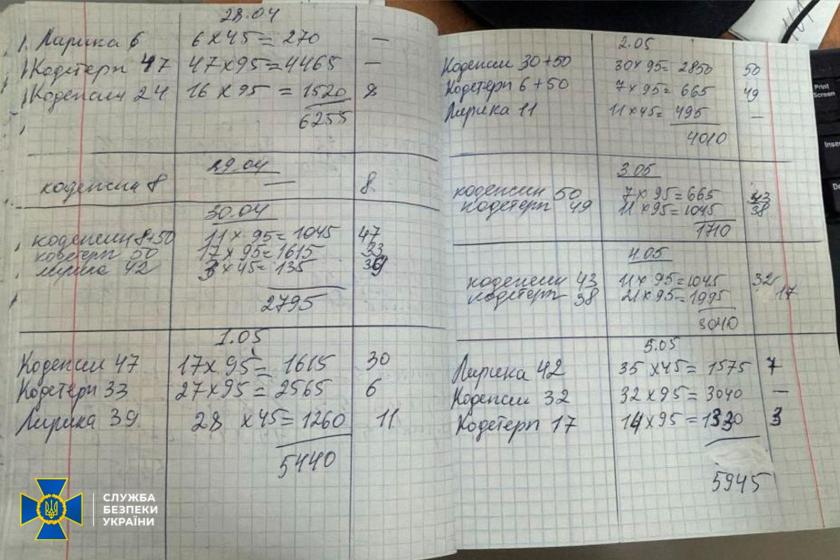 28.04
Лирика 6 6x45=270 —
Кодетерп 47 47x95=4465 —
Кодепсин 24 16x95=1520 8
6255
29.04
кодепсин 8 — 8
30.04
кодепсин 8+50 11x95=1045 47
кодетерп 50 17x95=1615 33
лирика 42 3x45=135 39
2795
1.05
Кодепсин 47 17x95=1615 30
Кодетерп 33 27x95=2565 6
Лирика 39 28x45=1260 11
5440
2.05
Кодепсин 30+50 30x95=2850 50
Кодетерп 6+50 7x95=665 49
Лирика 11 11x45=495 —
4010
3.05
кодепсин 50 7x95=665 43
кодетерп 49 11x95=1045 38
1710
4.05
кодепсин 43 11x95=1045 32
кодетерп 38 21x95=1995 17
3040
5.05
Лирика 42 35x45=1575 7
Кодепсин 32 32x95=3040 —
Кодетерп 17 14x95=1330 3
5945
СЛУЖБА
БЕЗПЕКИ
УКРАЇНИ
Print
Screen